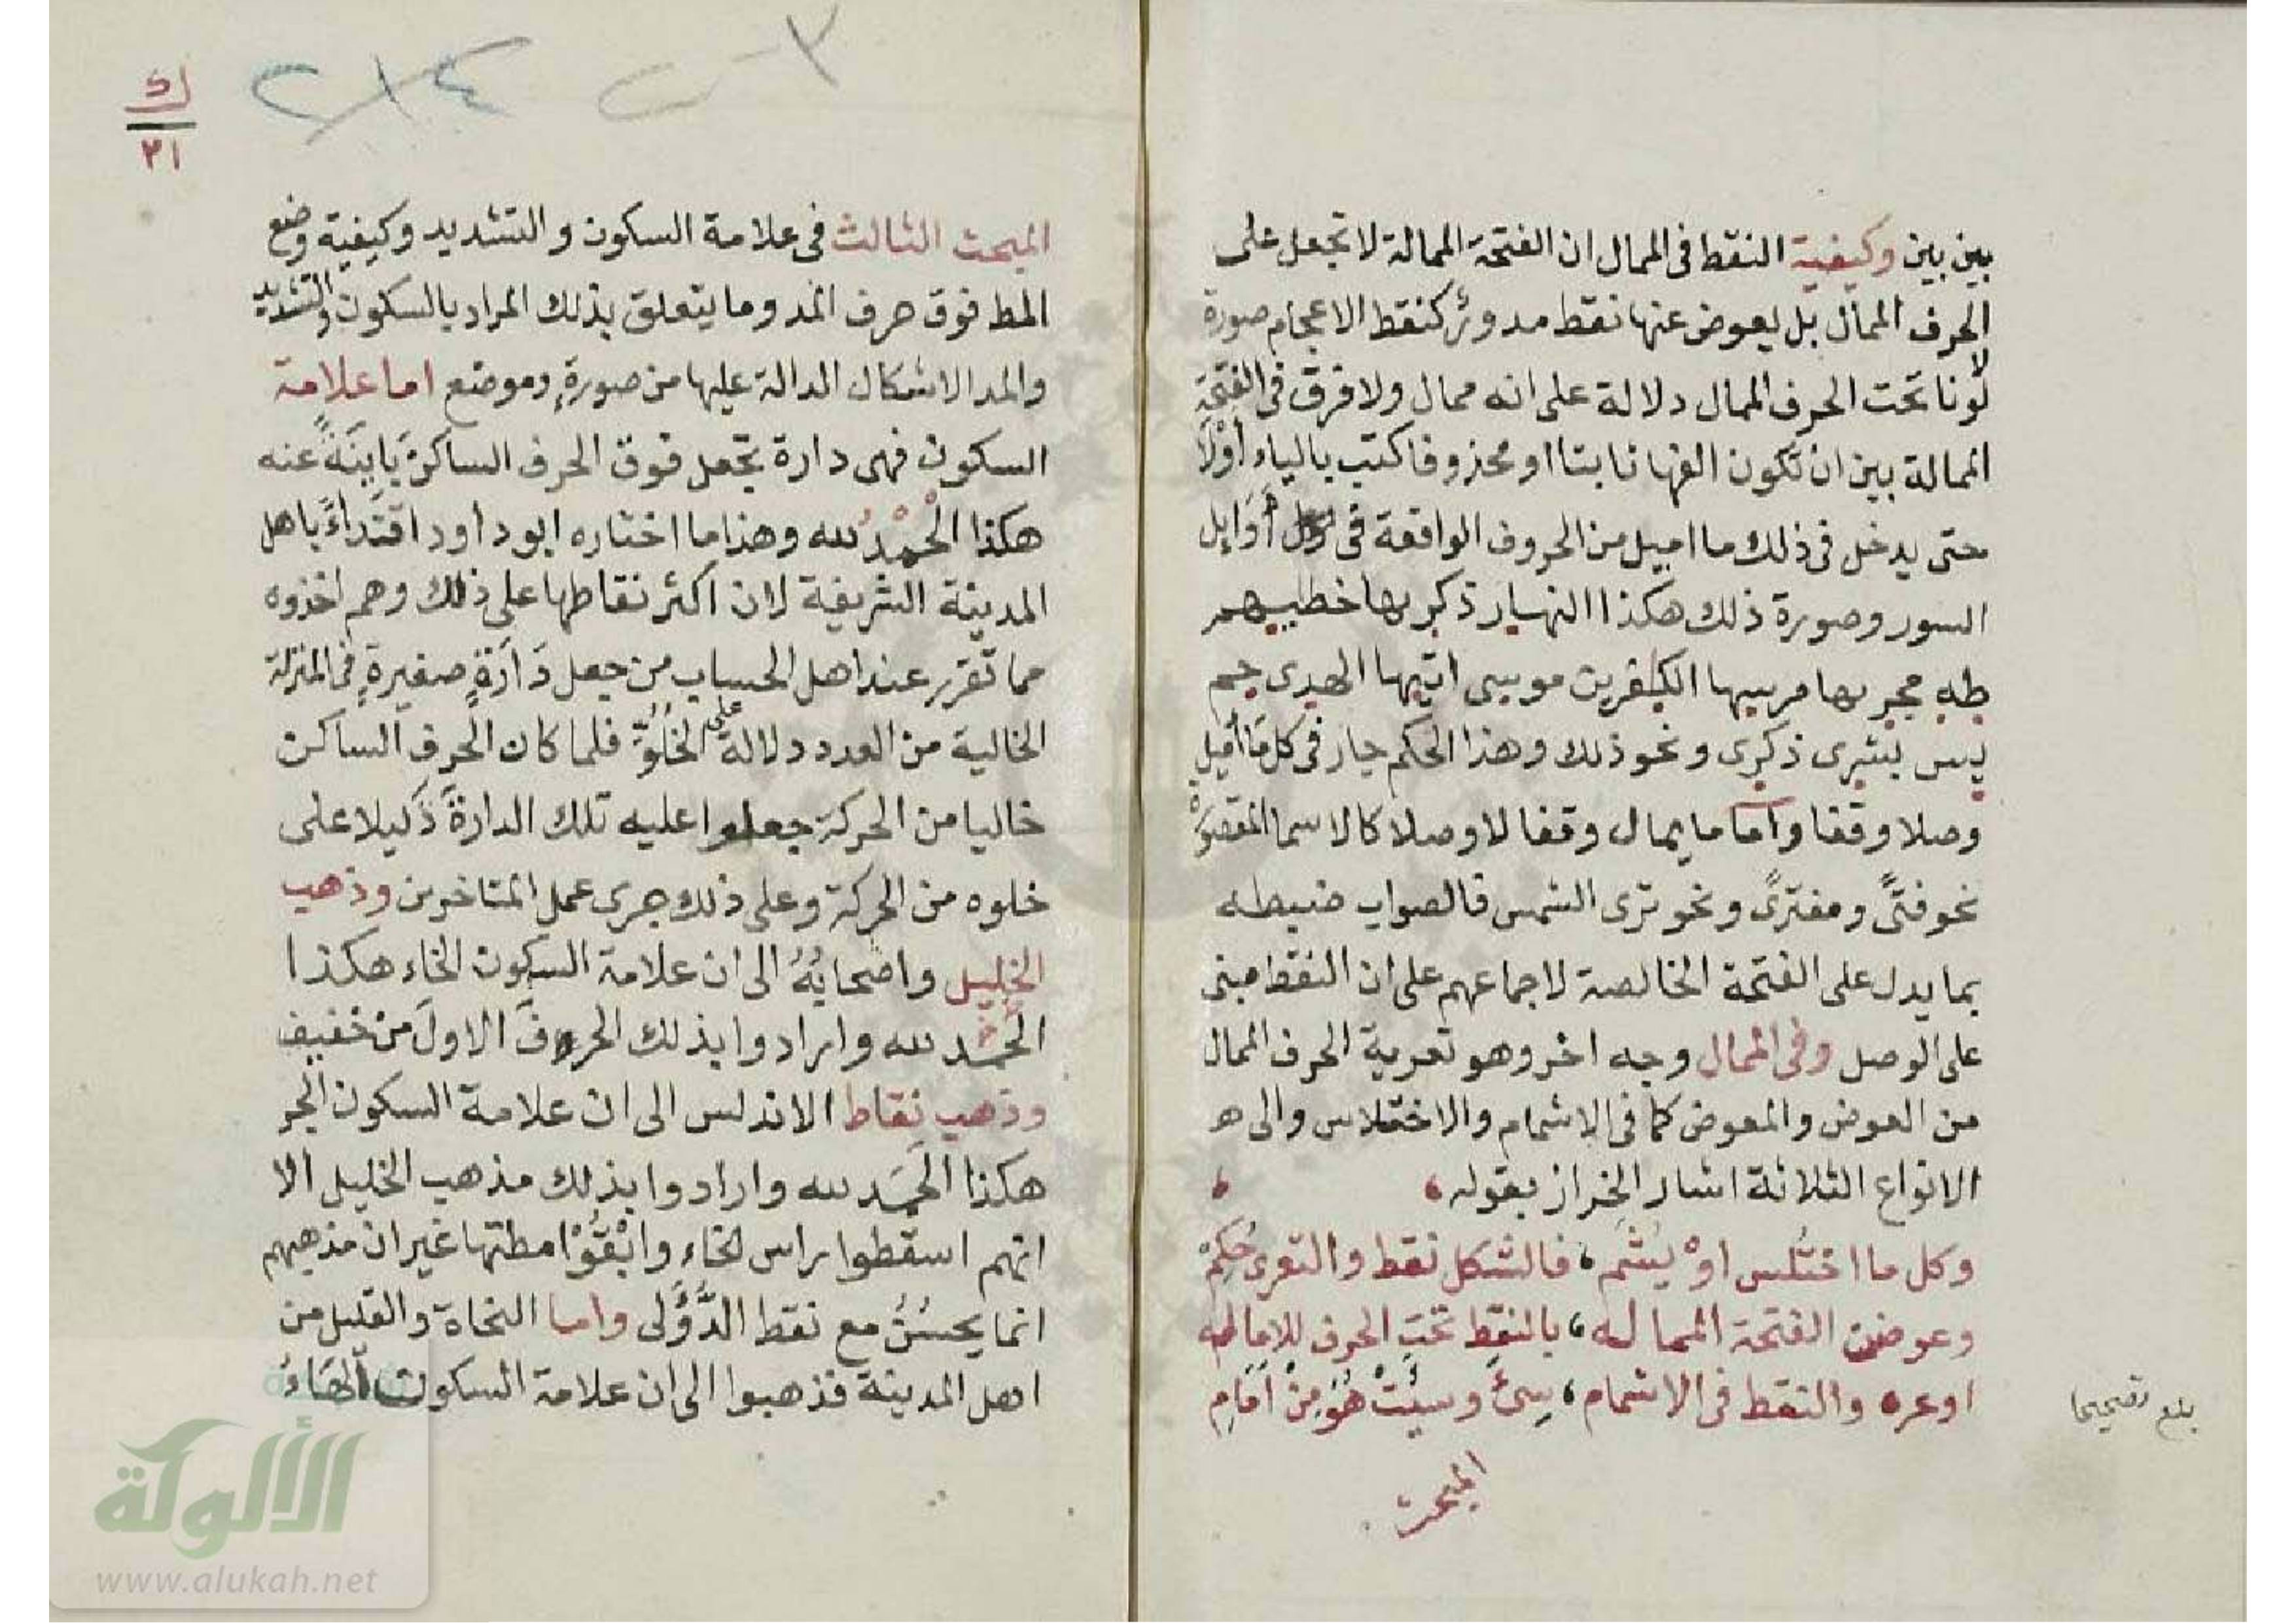 بين بين وكيفية النقط فى الممال ان الفتحة الممالة لا تجعل على
الحرف الممال بل يعوض عنها نقط مدور كنقط الاعجام صورة
لا لونا تحت الحرف الممال دلالة على انه ممال ولا فرق فى الفتحة
الممالة بين ان تكون الفها ثابتا او محذوفا كتب بالياء أوْلَا
حتى يدخل فى ذلك ما اميل من الحروف الواقعة فى أوَايل
السور وصورة ذلك هكذا النهار ذكريها خطيبهم
طه مجريها مرسيها الكفرين موسى اتيها الهدى حم
يس بشرى ذكرى ونحو ذلك وهذا الحكم جار فى كل مَا أميل
وصلا وقفا واما ما يمال وقفا لا وصلا كالاسما المقصورة
نحو فتىً ومفترىً ونحو ترى الشمس فالصواب ضبطه
بما يدل على الفتحة الخالصة لاجماعهم على ان النقط مبنى
على الوصل وفى الممال وجه اخر وهو تعرية الحرف الممال
من العوض والمعوض كما فى الاشمام والاختلاس والى هـ
الانواع الثلاثة اشار الخراز بقوله،
وكل ما اختُلس اوْ يُشَمْ، فالشكل نقط والتعرى حُكِمْ
وعوضن الفتحة المماله، بالنقط تحت الحرف للاماله
اوعره والنقط فى الاشمام، سِىءَ وسيئَتْ هُوَ مِنْ اَمَامِ
بلغ تصحيحا
المبحث
٢١٤
ك
٢١
المبحث الثالث فى علامة السكون والتشديد وكيفية وضع
المط فوق حرف المد وما يتعلق بذلك المراد بالسكون والتشديد
والمد الاشكال الدالة عليها من صورةٍ وموضع اما علامة
السكون فهى دارة تجعل فوق الحرف الساكن بَاينَةً عنه
هكذا الْحمْدُ لله وهذا ما اختاره ابو داود اقتداءً باهل
المدينة الشريفة لان اكثر نقاطها على ذلك وهم اخذوه
مما تقرر عند اهل الحساب من جعل دَارَةٍ صغيرةٍ فى المنزلة
الخالية من العدد دلالة على الخُلُوِّ فلما كان الحرف الساكن
خاليا من الحركة جعلوا عليه تلك الدارةَ دَليلا على
خلوه من الحركة وعلى ذلك جرى عمل المتاخرين وذهب
الخليل واصْحابُهُ الى ان علامة السكون الخاء هكذا
الحمد لله وارادوا بذلك الحروفَ الاولَ من خفيف
وذهب نقاط الاندلس الى ان علامة السكون الجر
هكذا الحَمَد لله وارادوا بذلك مذهب الخليل الا
انهم اسقطوا راس الخاء وابْقُوْا مطتها غير ان مذهبهم
انما يحسُنُ مع نقط الدُّؤَلى واما النحاة والقليل من
اهل المدينة فذهبوا الى ان علامة السكون الهَاءُ
الألوكة
www.alukah.net